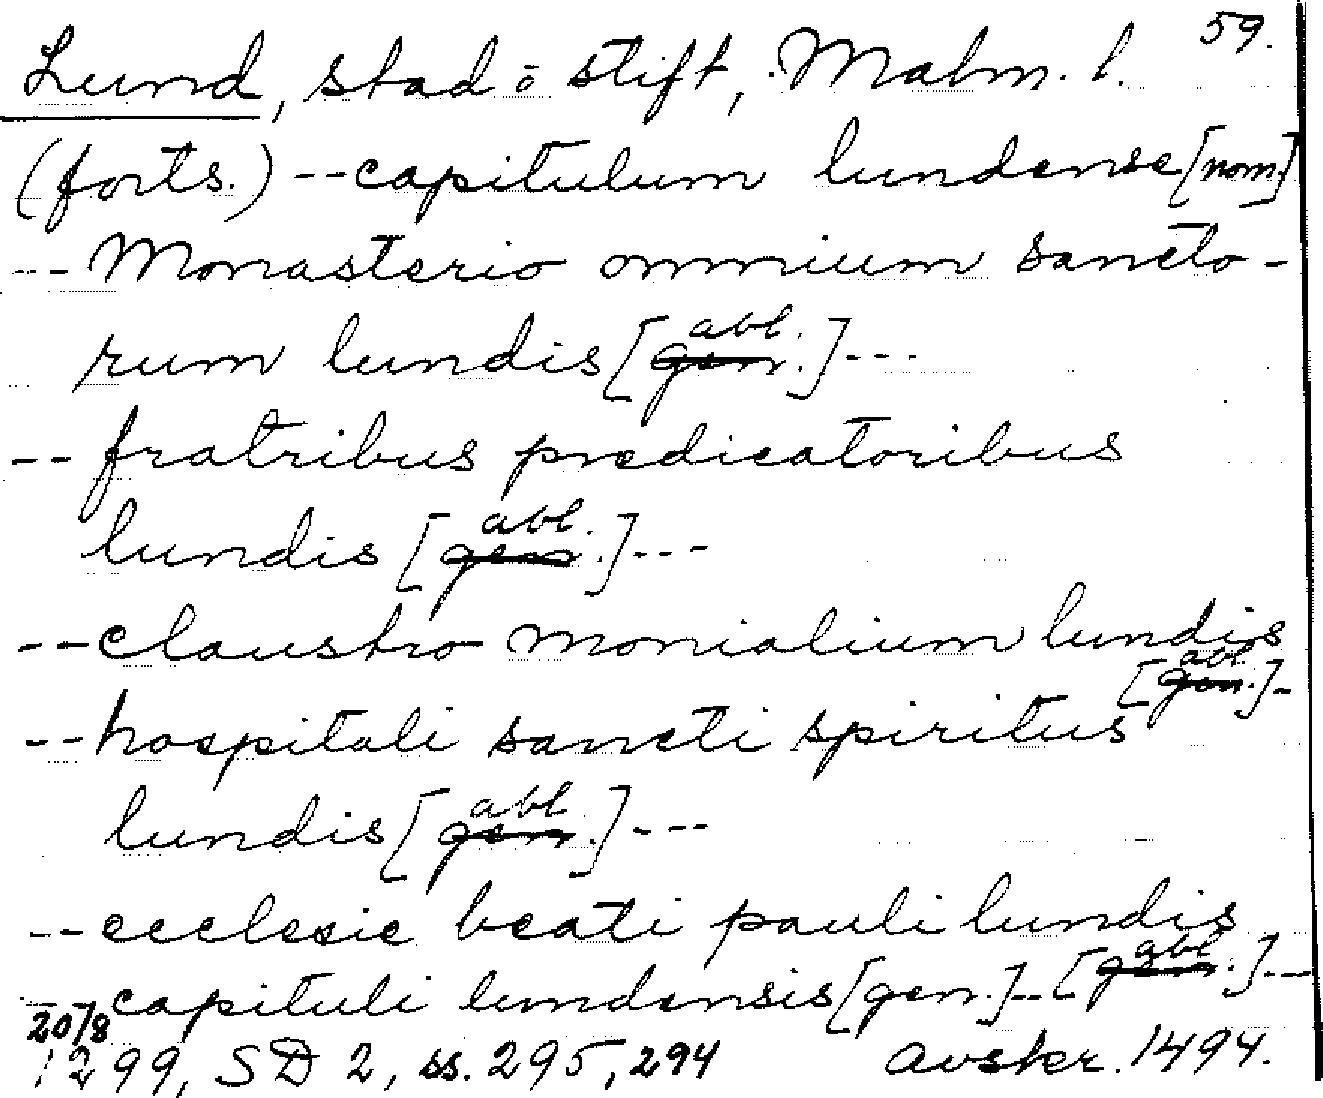 59.
Lund, stad o stift, Malm. l.
(forts.) --capitulum lundense [nom.]
--- Monasterio omnium sancto-
rum lundis [gen. abl.]---
-- fratribus predicatoribus
lundis [gen. abl.]---
-- claustro monialium lundis
[gen. abl.]-
-- hospitali sancti spiritus
lundis [gen. abl.]---
-- ecclesie beati pauli lundis
[gen. abl.]---
-- capituli lundensis [gen.]--
20/8
1299, SD 2, ss. 295, 294 avskr. 1494.